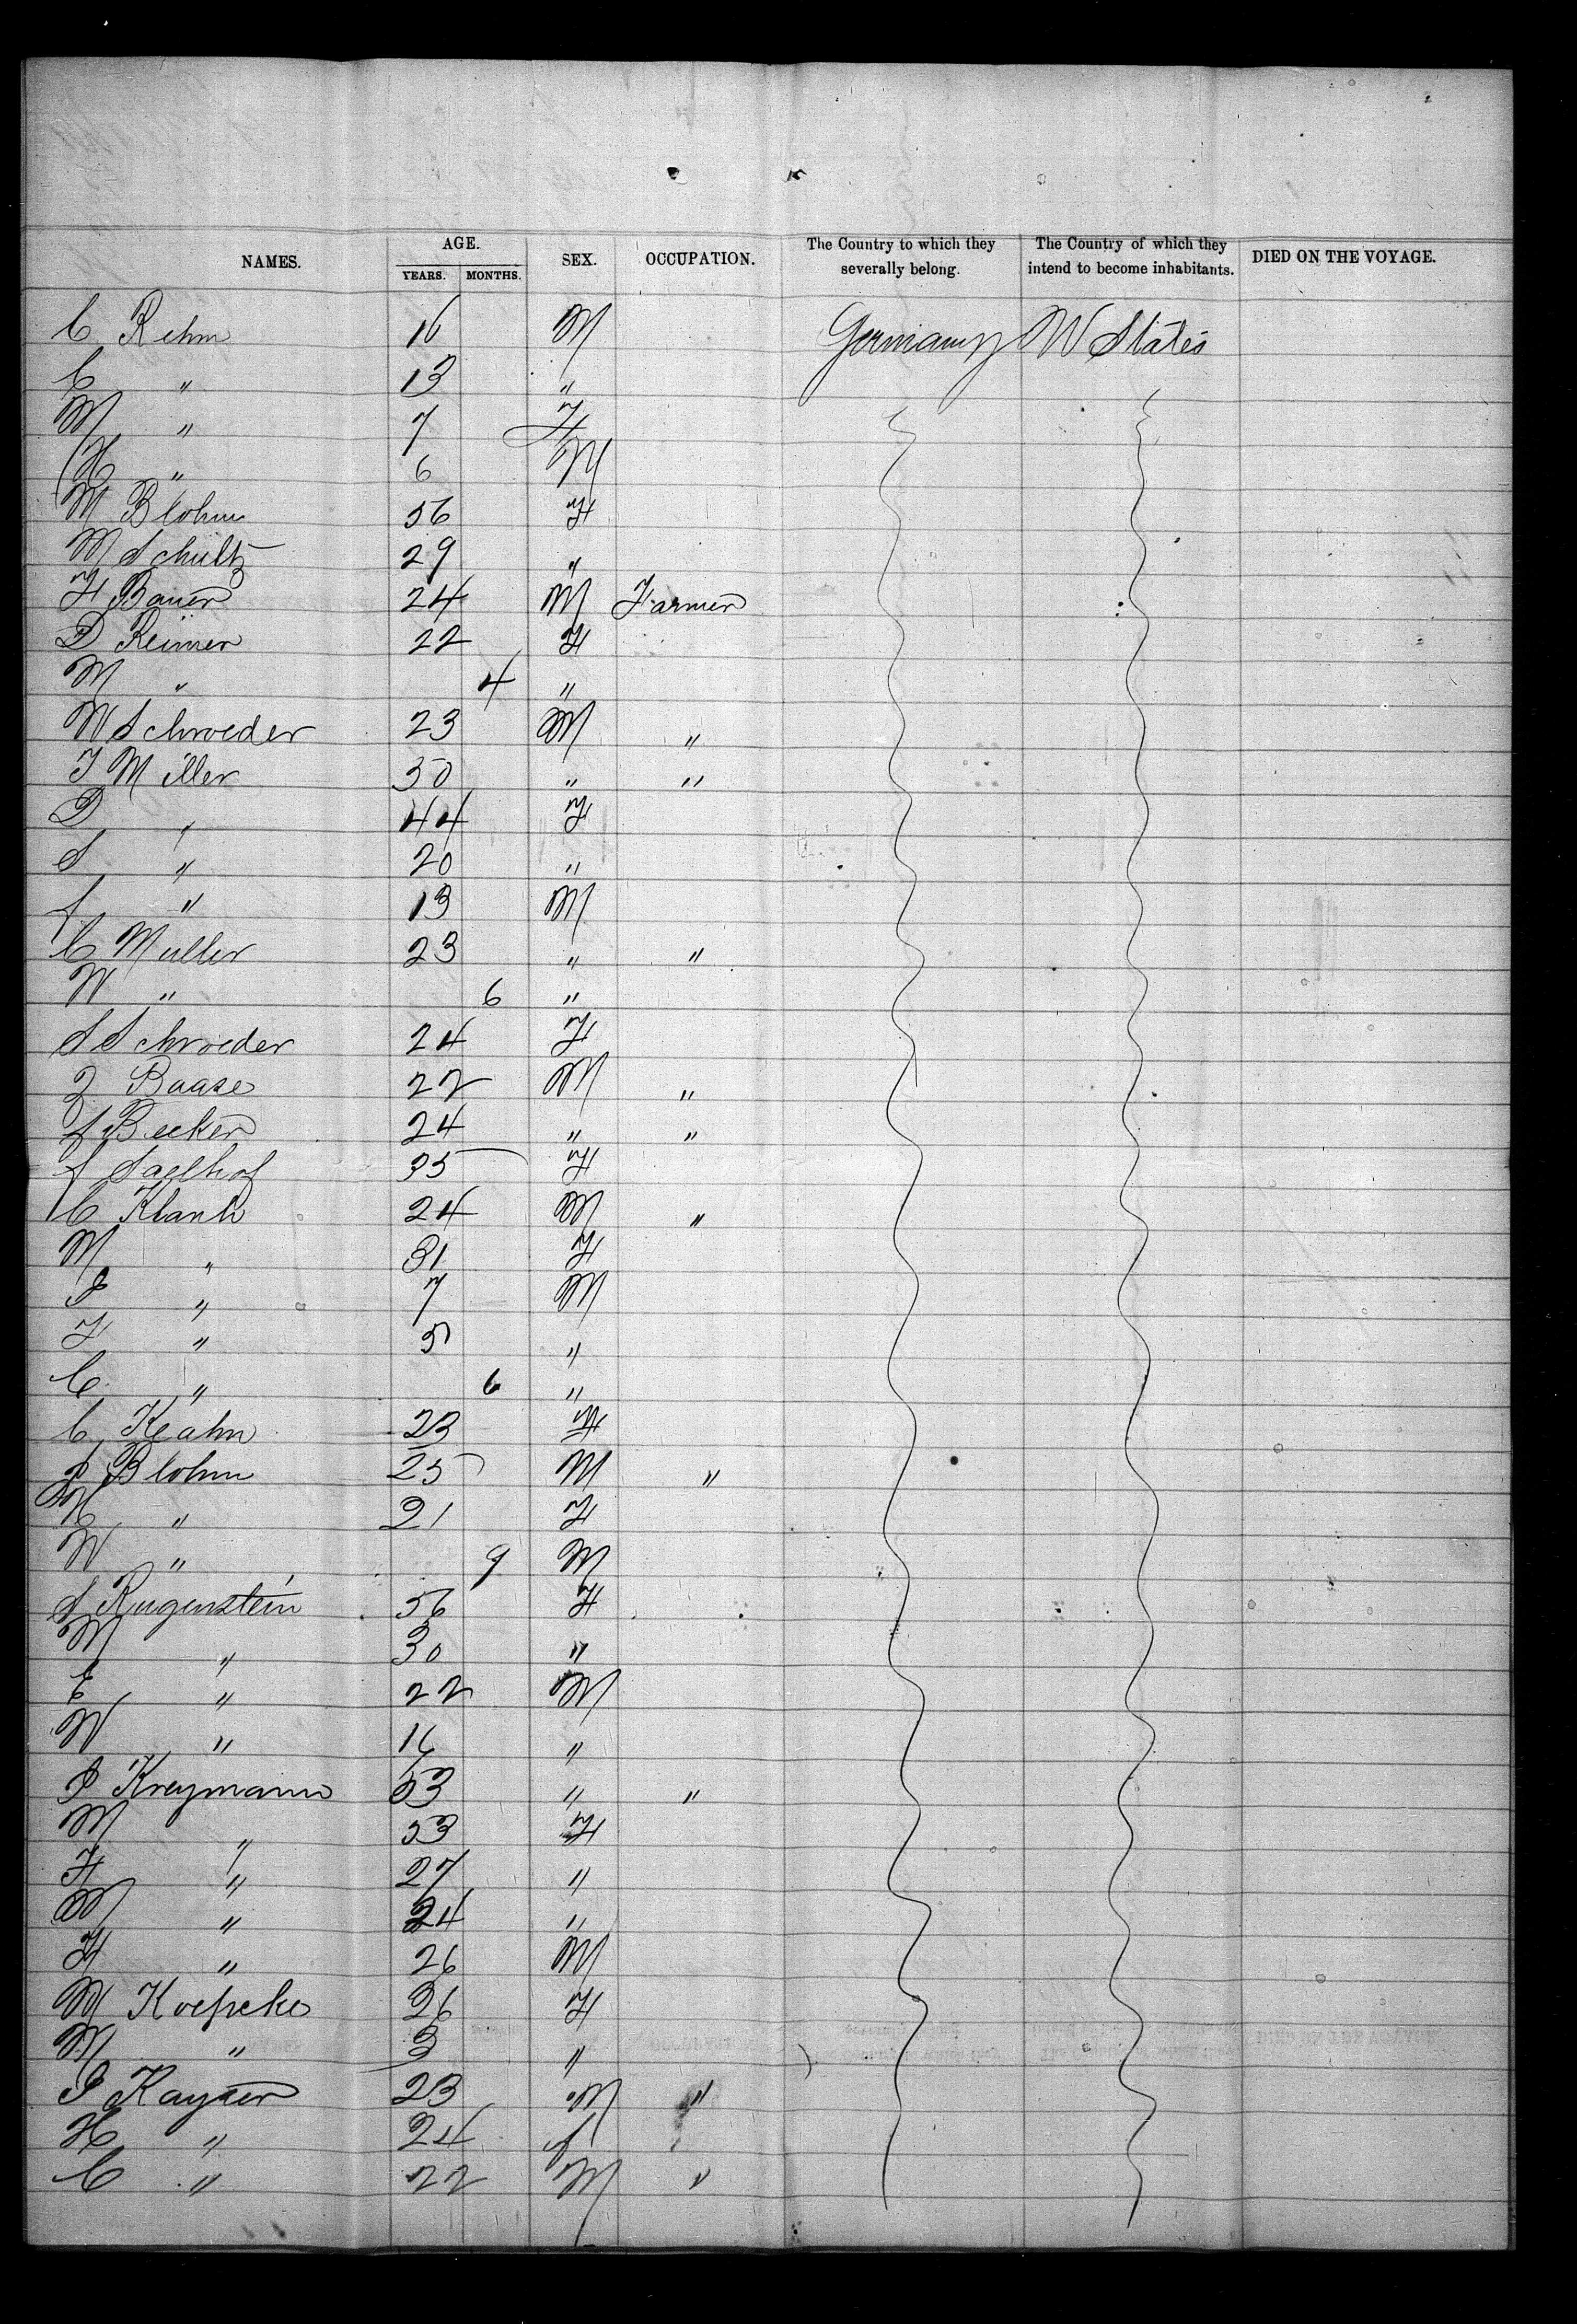 NAMES. AGE. YEARS. MONTHS. SEX. OCCUPATION. The Country to which they severally belong. The Country of which they intend to become inhabitants. DIED ON THE VOYAGE.
C Rehm 16 M Germany U States
C " 13 "
M " 7 F
H " 6 M
M Blohm 56 F
M Schultz 29 "
F Bauer 24 M Farmer
D Reimer 22 F
M " 4 "
W Schroeder 23 M "
J Miller 50 " "
D " 44 F
S " 20 "
J " 13 M
C Muller 23 " "
W " 6 "
S Schroeder 24 F
Z Baase 22 M "
J Becker 24 " "
J 35 F
C 24 M "
M " 31 F
P " 7 M
F " 5 "
C " 6 "
C Keahn 23 F
P Blohm 25 M "
H " 21 F
W " 9 M
S Rugenstein 56 F
M " 30 "
E " 22 M
W " 16 "
P Kreymann 53 " "
M " 53 F
F " 27 "
M " 24 "
F " 26 M
M Koepcke 36 F
M " 3 "
P Kayser 23 M "
H " 24 f
C " 22 M "